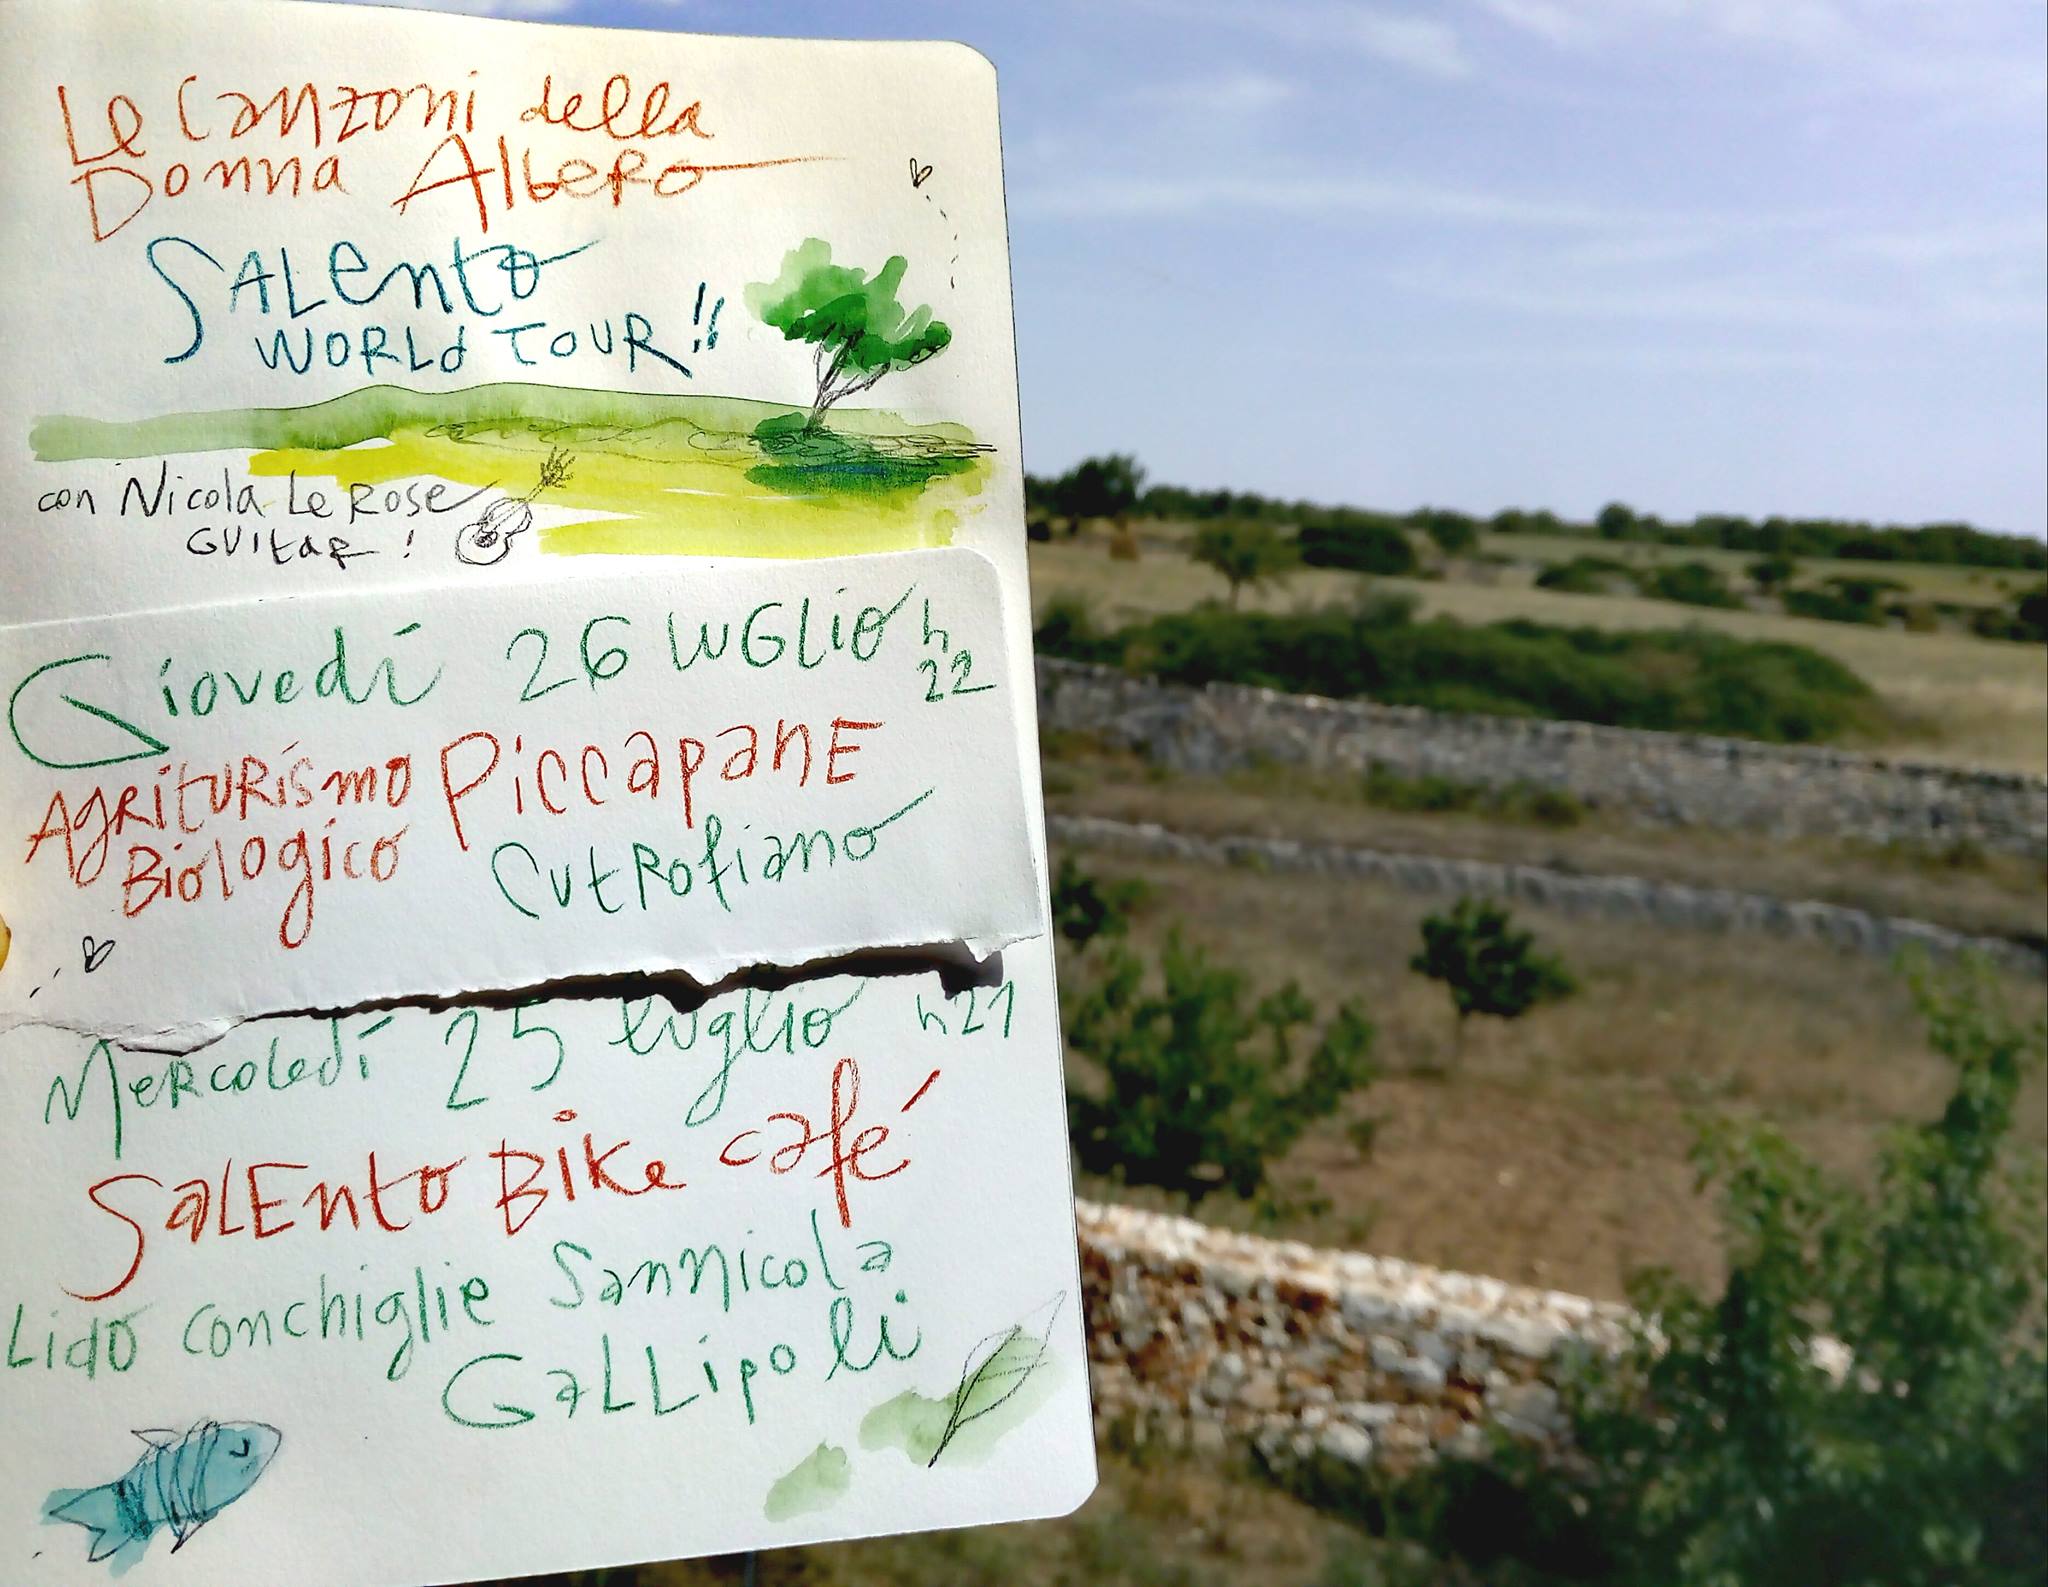 Le Canzoni della
Donna Albero
SALento
WORLd TOUR!!
con Nicola Le Rose
GUitaR !
Giovedí 26 LUGLIO h
22
AgRiTURísmo PiccapanE
BioLogico CutRofiano
MeRcoledí 25 luglio h21
SaLEnto Bike café
Lido conchiglie Sannicola
GaLLipoli